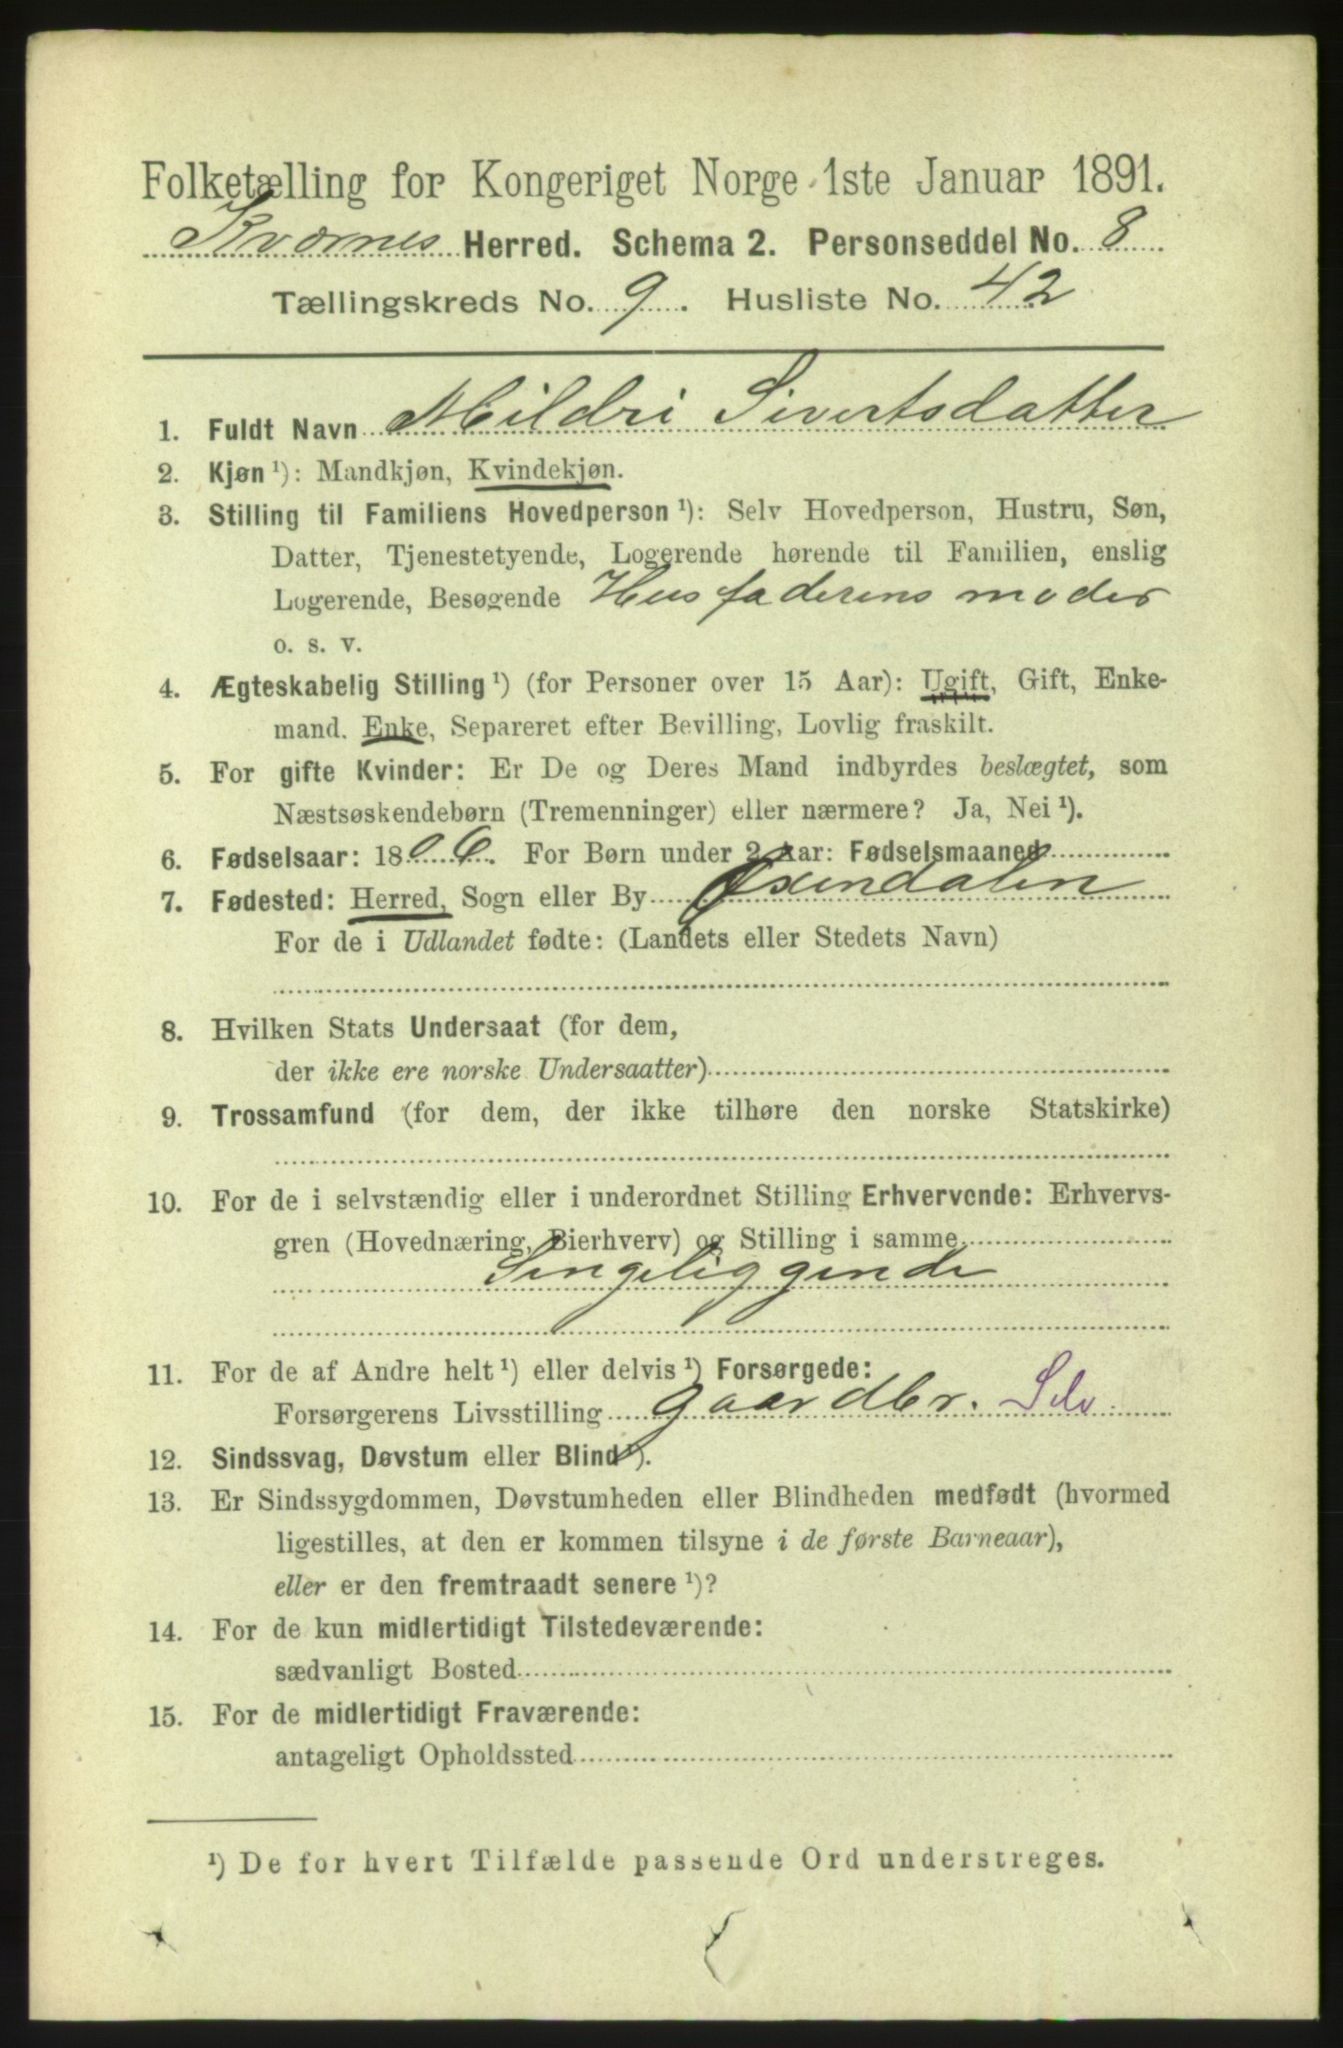 Folketælling for Kongeriget Norge 1ste Januar 1891.
Kvernes Herred. Schema 2. Personseddel No. 8
Tællingskreds No. 9. Husliste No. 42
1. Fuldt Navn Mildri Sivertsdatter
2. Kjøn ¹): Mandkjøn, Kvindekjøn.
3. Stilling til Familiens Hovedperson ¹): Selv Hovedperson, Hustru, Søn,
Datter, Tjenestetyende, Logerende hørende til Familien, enslig
Logerende, Besøgende Husfaderens moder
o. s. v.
4. Ægteskabelig Stilling ¹) (for Personer over 15 Aar): Ugift, Gift, Enke-
mand. Enke, Separeret efter Bevilling, Lovlig fraskilt.
5. For gifte Kvinder: Er De og Deres Mand indbyrdes beslægtet, som
Næstsøskendebørn (Tremenninger) eller nærmere? Ja, Nei ¹).
6. Fødselsaar: 1806. For Børn under 2 Aar: Fødselsmaaned
7. Fødested: Herred, Sogn eller By Øxendalen
For de i Udlandet fødte: (Landets eller Stedets Navn)
8. Hvilken Stats Undersaat (for dem,
der ikke ere norske Undersaatter)
9. Trossamfund (for dem, der ikke tilhøre den norske Statskirke)
10. For de i selvstændig eller i underordnet Stilling Erhvervende: Erhvervs-
gren (Hovednæring, Bierhverv) og Stilling i samme
Sengeliggende
11. For de af Andre helt ¹) eller delvis ¹) Forsørgede:
Forsørgerens Livsstilling gaardbr. Selv
12. Sindssvag, Døvstum eller Blind ¹).
13. Er Sindssygdommen, Døvstumheden eller Blindheden medfødt (hvormed
ligestilles, at den er kommen tilsyne i de første Barneaar),
eller er den fremtraadt senere ¹)?
14. For de kun midlertidigt Tilstedeværende:
sædvanligt Bosted
15. For de midlertidigt Fraværende:
antageligt Opholdssted
¹) De for hvert Tilfælde passende Ord understreges.